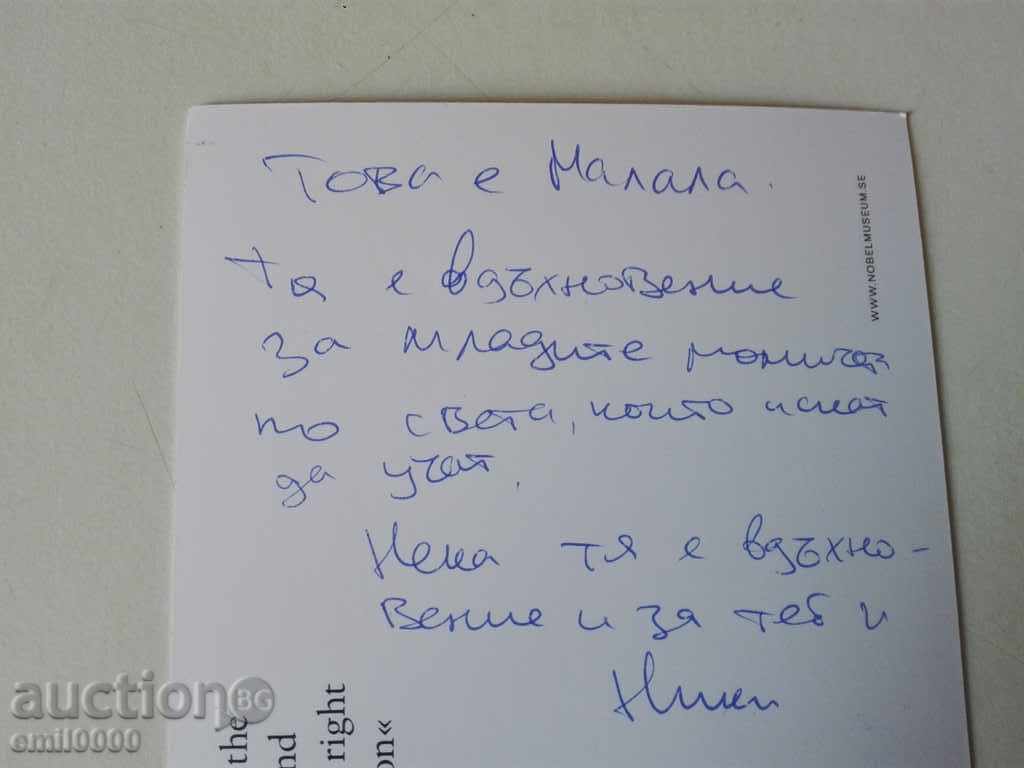 Това е Малала.
Тя е вдъхновение
за младите момичета
по света, които искат
да учат.
Нека тя е вдъхно-
вение и за теб и
Ники
WWW.NOBELMUSEUM.SE
the
nd
right
on«
auction BG
emil0000